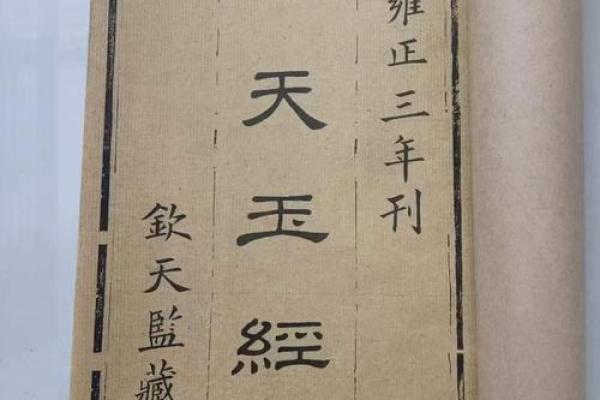 雍正三年刊
天玉經
欽天監藏